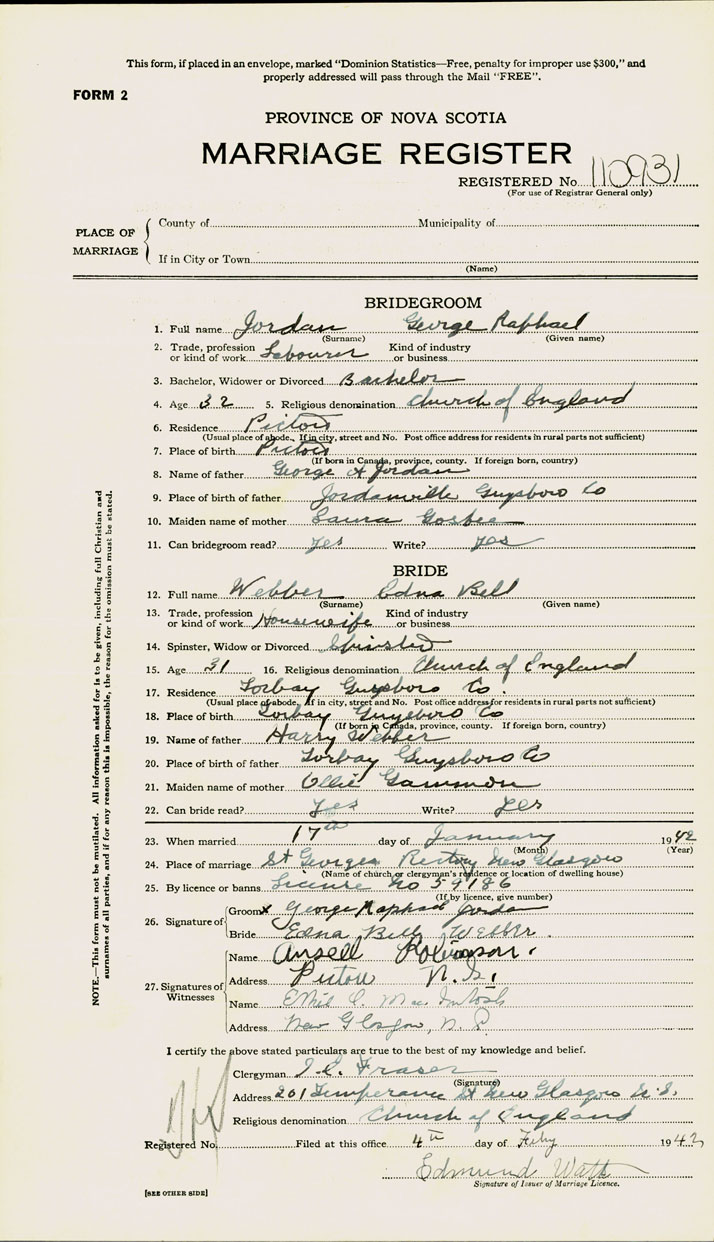 This form, if placed in an envelope, marked "Dominion Statistics—Free, penalty for improper use $300," and
properly addressed will pass through the Mail "FREE".
FORM 2
PROVINCE OF NOVA SCOTIA
MARRIAGE REGISTER
REGISTERED No. 110931
(For use of Registrar General only)
PLACE OF MARRIAGE
County of Municipality of
If in City or Town
(Name)
BRIDEGROOM
1. Full name Jordan George Raphael
(Surname) (Given name)
2. Trade, profession or kind of work Labourer Kind of industry or business
3. Bachelor, Widower or Divorced Bachelor
4. Age 32 5. Religious denomination Church of England
6. Residence Pictou
(Usual place of abode. If in city, street and No. Post office address for residents in rural parts not sufficient)
7. Place of birth Pictou
(If born in Canada, province, county. If foreign born, country)
8. Name of father George A Jordan
9. Place of birth of father Jordanville Guysboro Co
10. Maiden name of mother Laura
11. Can bridegroom read? yes Write? yes
BRIDE
12. Full name Webber Edna Bell
(Surname) (Given name)
13. Trade, profession or kind of work Housewife Kind of industry or business
14. Spinster, Widow or Divorced Spinster
15. Age 31 16. Religious denomination Church of England
17. Residence Torbay Guysboro Co.
(Usual place of abode. If in city, street and No. Post office address for residents in rural parts not sufficient)
18. Place of birth Torbay Guysboro Co
(If born in Canada, province, county. If foreign born, country)
19. Name of father Harry Webber
20. Place of birth of father Torbay Guysboro Co
21. Maiden name of mother Ollie Gammon
22. Can bride read? yes Write? yes
23. When married 17th day of January 1942
(Month) (Year)
24. Place of marriage St Georges Rectory New Glasgow
(Name of church or clergyman's residence or location of dwelling house)
25. By licence or banns License No 59186
(If by licence, give number)
26. Signature of
Groom x George Raphael Jordan
Bride Edna Bell Webber.
27. Signatures of Witnesses
Name Ansell Robinson.
Address Pictou N.S.
Name Ethel C. MacIntosh
Address New Glasgow, N.S
I certify the above stated particulars are true to the best of my knowledge and belief.
Clergyman Fraser
(Signature)
Address 201 Temperance St New Glasgow N.S.
Religious denomination Church of England
Registered No. Filed at this office 4th day of Feby 1942
Edmund Watt
Signature of Issuer of Marriage Licence.
[SEE OTHER SIDE]
NOTE.—This form must not be mutilated. All information asked for is to be given, including full Christian and
surnames of all parties, and if for any reason this is impossible, the reason for the omission must be stated.